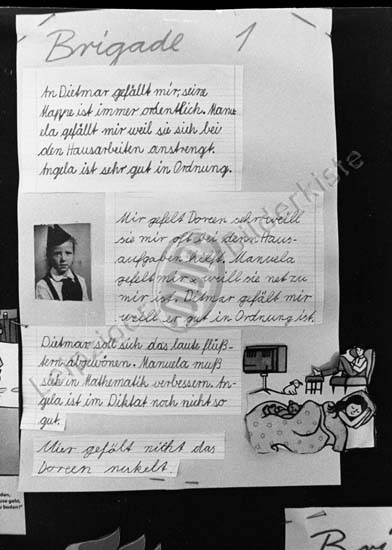 Brigade 1
An Dietmar gefällt mir, seine
Mappe ist immer ordentlich. Manu-
ela gefällt mir weil sie sich bei
den Hausarbeiten anstrengt.
Angela ist sehr gut in Ordnung.
Mir gefelt Doreen sehr weill
sie mir oft bei denn Haus-
aufgaben hielft. Manuela
gefelt mir weill sie net zu
mir ist. Ditmar gefält mir
weill er gut in Ordnung ist.
Dietmar soll sich das laute flüß-
tern abgewönen. Manuela muß
sich in Mathematik verbessern. An-
gela ist im Diktat noch nicht so
gut.
Mier gefält nicht das
Doreen nerkelt.